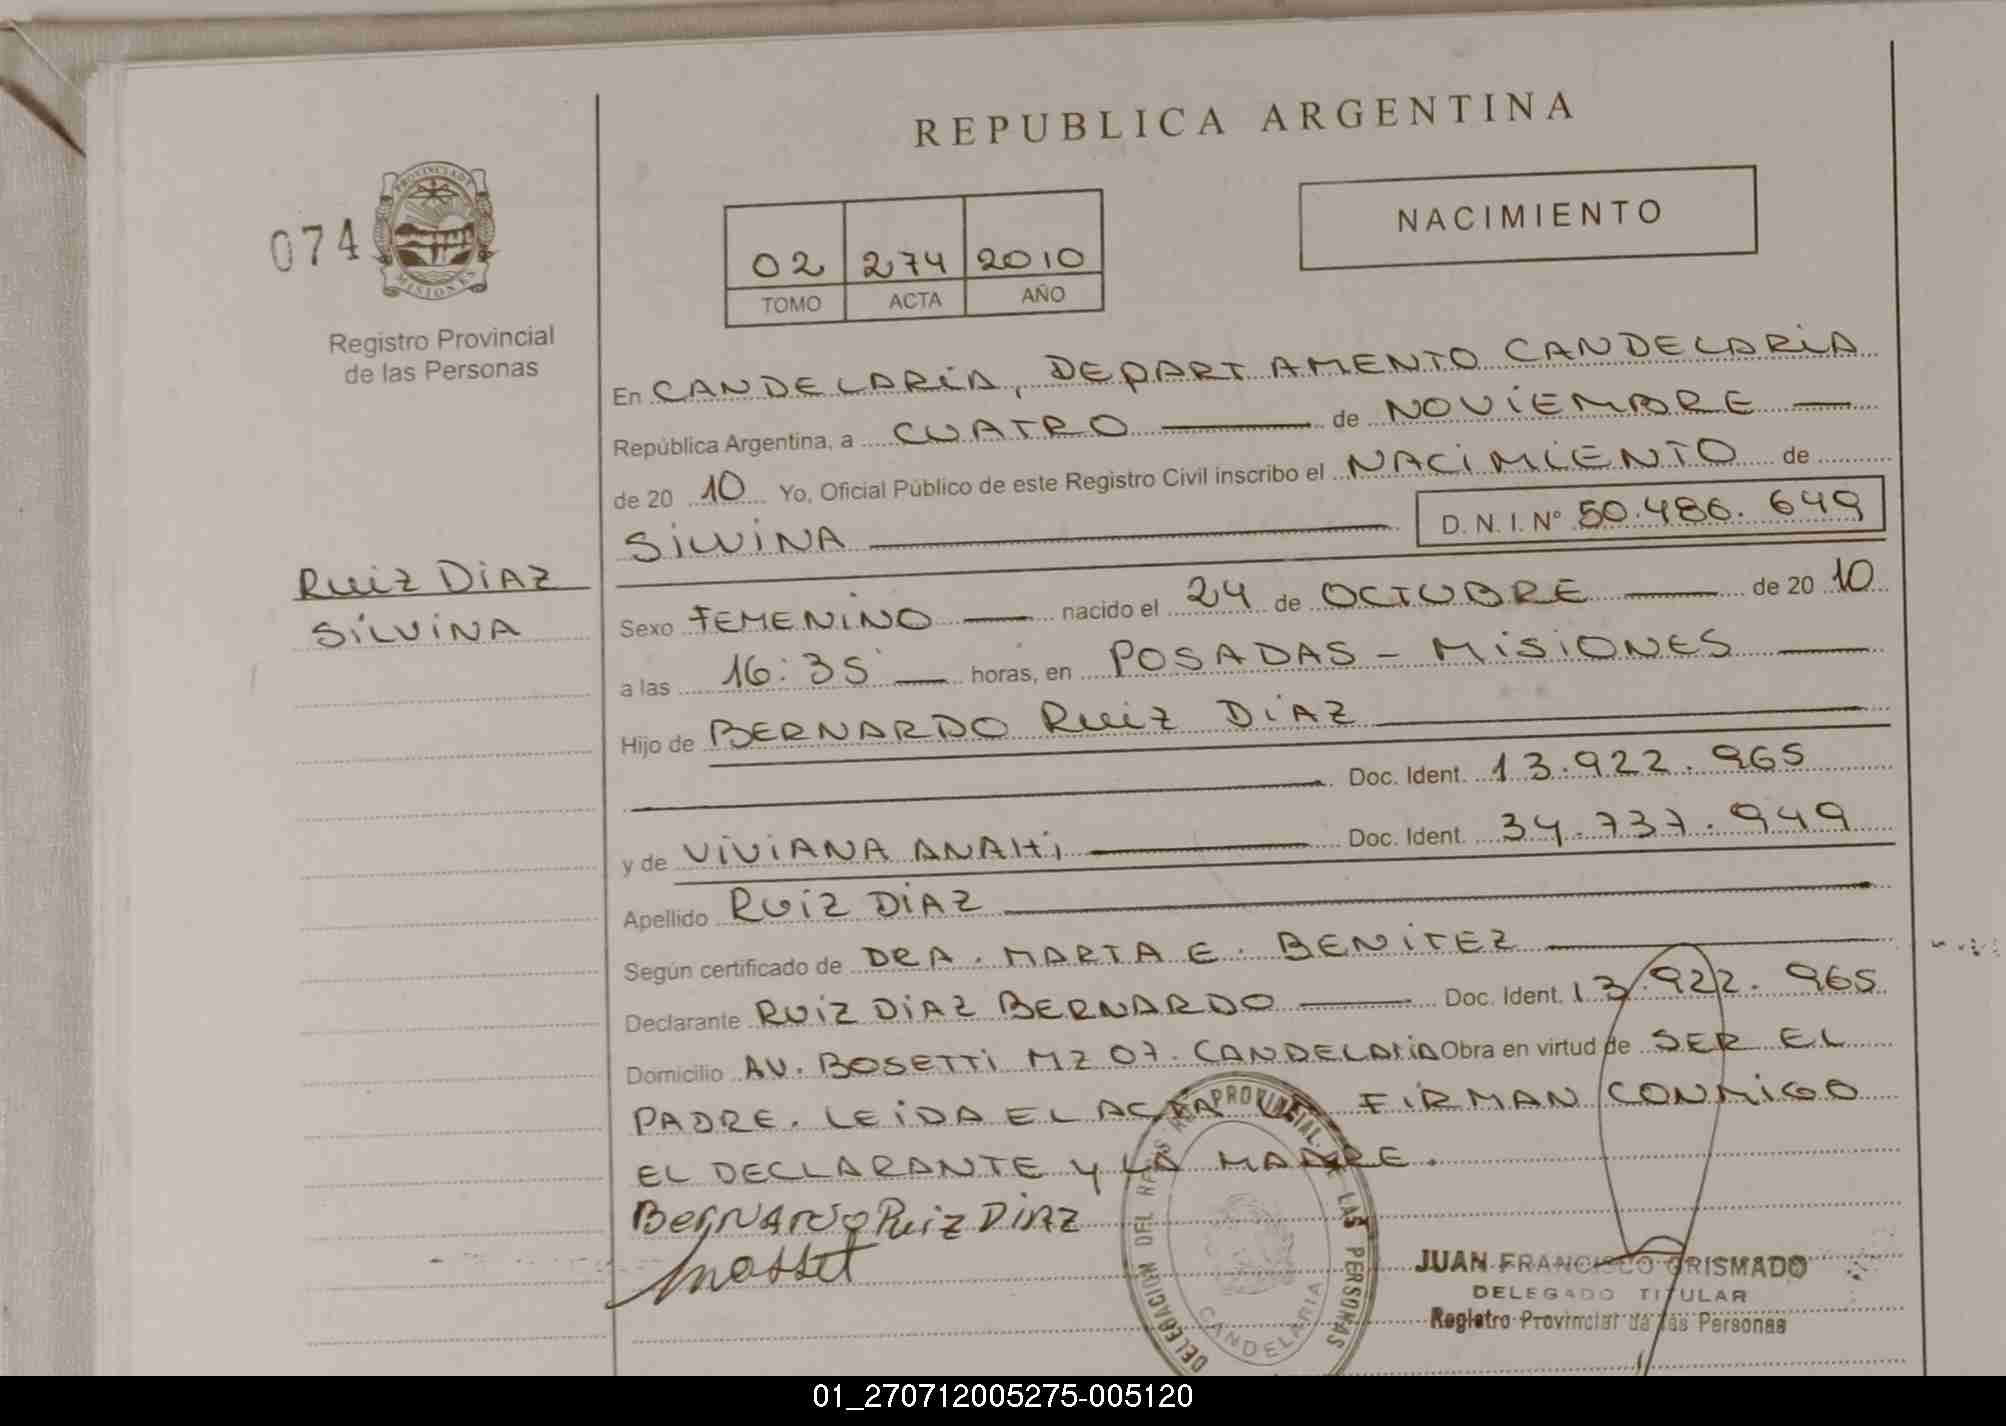 REPUBLICA ARGENTINA
PROVINCIA DE
MISIONES
074
Registro Provincial
de las Personas
NACIMIENTO
02 274 2010
TOMO ACTA AÑO
En CANDELARIA, DEPARTAMENTO CANDELARIA
República Argentina, a CUATRO de NOVIEMBRE
de 20 10 Yo, Oficial Público de este Registro Civil inscribo el NACIMIENTO de
SILVINA D. N. I. Nº 50.486.649
RUIZ DIAZ
SILVINA
Sexo FEMENINO nacido el 24 de OCTUBRE de 20 10
a las 16:35 horas, en POSADAS - MISIONES
Hijo de BERNARDO RUIZ DIAZ
Doc. Ident. 13.922.965
y de VIVIANA ANAHI Doc. Ident. 34.737.949
Apellido RUIZ DIAZ
Según certificado de DRA. MARTA E. BENITEZ
Declarante RUIZ DIAZ BERNARDO Doc. Ident. 13.922.965
Domicilio AV. BOSETTI MZ 07. CANDELARIA Obra en virtud de SER EL
PADRE. LEIDA EL ACTA FIRMAN CONMIGO
EL DECLARANTE Y LA MADRE.
BERNARDO RUIZ DIAZ
DELEGACION DEL REG. PROVINCIAL LAS PERSONAS
CANDELARIA
JUAN FRANCISCO GRISMADO
DELEGADO TITULAR
Registro Provincial de las Personas
01_270712005275-005120